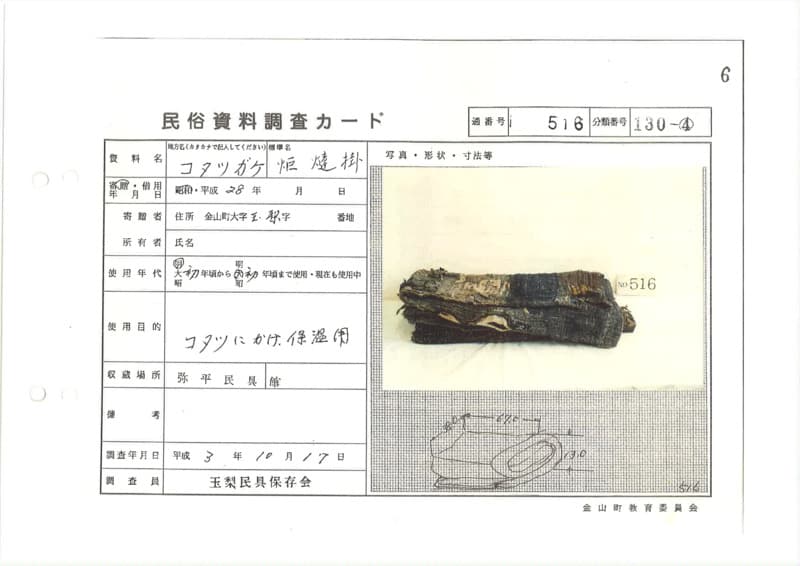 6
民俗資料調査カード
通番号 516 分類番号 130-④
資料名 地方名(カタカナで記入してください) 標準名
コタツガケ 炬燵掛
寄贈・借用年月日 昭和・平成 28年 月 日
寄贈者 住所 金山町大字玉梨字 番地
所有者 氏名
使用年代 明大昭 初年頃から 明大昭 初年頃まで使用・現在も使用中
使用目的 コタツにかけ、保温用
収蔵場所 弥平民具館
備考
調査年月日 平成 3年 10月 17日
調査員 玉梨民具保存会
写真・形状・寸法等
NO 516
67.0
13.0
516
金山町教育委員会